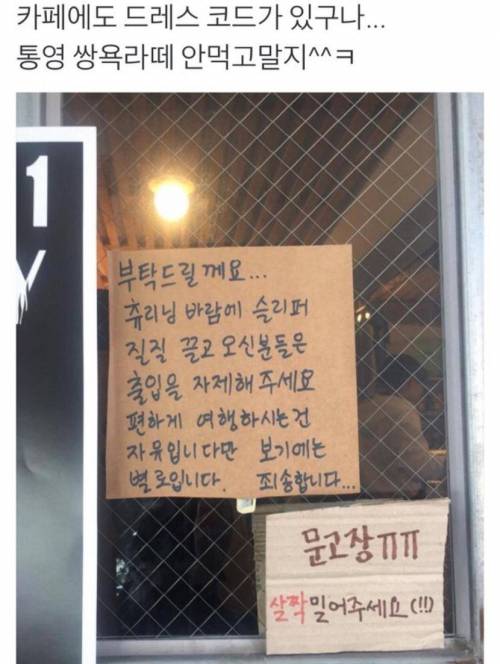 카페에도 드레스 코드가 있구나...
통영 쌍욕라떼 안먹고말지^^ㅋ
1
Y
부탁드릴께요...
츄리닝 바람에 슬리퍼
질질 끌고 오신분들은
출입을 자제해주세요
편하게 여행하시는건
자유입니다만 보기에는
별로입니다. 죄송합니다...
문고장ㅠㅠ
살짝밀어주세요(!!)